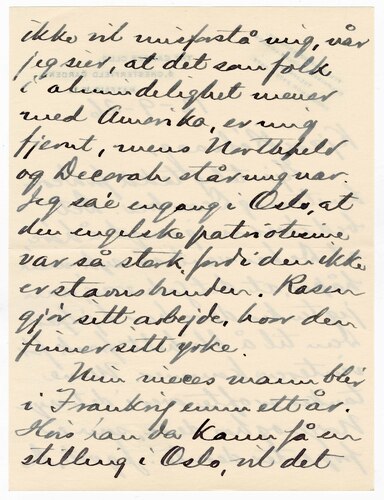 ikke vil misforstå mig, når
jeg sier, at det som folk
i almindelighet mener
med Amerika, er mig
fjernt, mens Northfield
og Decorah står mig nær.
Jeg sa'e engang i Oslo, at
den engelske patriotisme
var så sterk, fordi den ikke
er stavnsbunden. Rasen
gjør sitt arbejde, hvor den
finner sitt yrke.
Min nieces mann blir
i Frankrig ennu ett år.
Hvis han da kann få en
stilling i Oslo, vil det